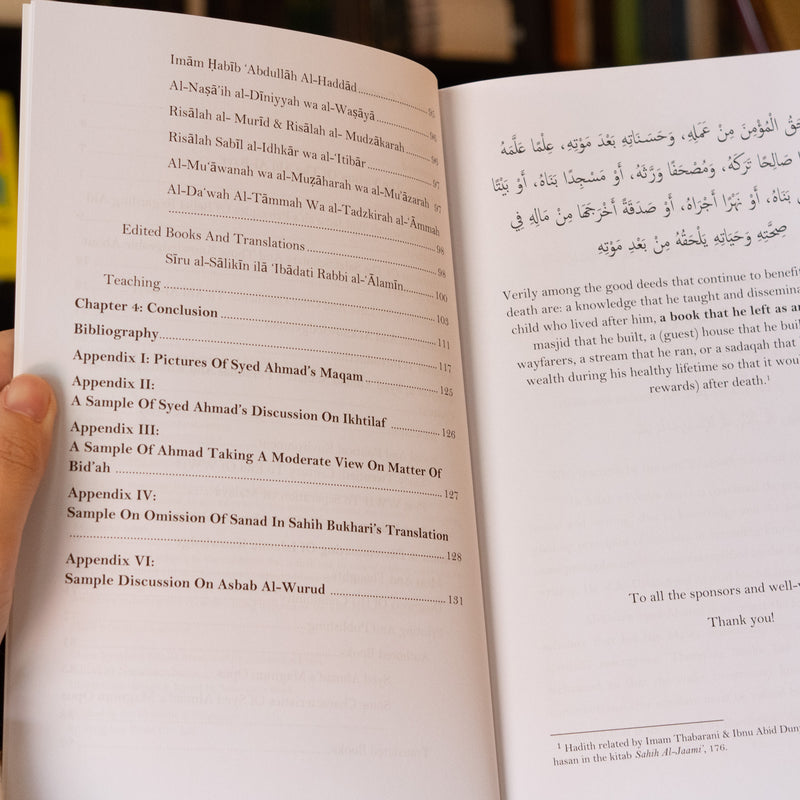 Imām Ḥabīb ‘Abdullāh Al-Haddād..........95
Al-Naṣā’ih al-Dīniyyah wa al-Waṣāyā..........96
Risālah al- Murīd & Risālah al- Mudzākarah..........96
Risālah Sabīl al-Idhkār wa al-‘Itibār..........97
Al-Mu‘āwanah wa al-Muẓāharah wa al-Mu’āzarah 97
Al-Da‘wah Al-Tāmmah Wa al-Tadzkirah al-‘Āmmah
..........98
Edited Books And Translations..........98
Sīru al-Sālikīn ilā ‘Ibādati Rabbi al-‘Ālamīn..........100
Teaching..........103
Chapter 4: Conclusion..........111
Bibliography..........117
Appendix I: Pictures Of Syed Ahmad’s Maqam..........125
Appendix II:
A Sample Of Syed Ahmad’s Discussion On Ikhtilaf..........126
Appendix III:
A Sample Of Ahmad Taking A Moderate View On Matter Of
Bid’ah..........127
Appendix IV:
Sample On Omission Of Sanad In Sahih Bukhari’s Translation
..........128
Appendix VI:
Sample Discussion On Asbab Al-Wurud..........131
الْمُؤْمِنَ مِنْ عَمَلِهِ، وَحَسَنَاتِهِ بَعْدَ مَوْتِهِ، عِلْمًا عَلَّمَهُ
صَالِحًا تَرَكَهُ، وَمُصْحَفًا وَرَّثَهُ، أَوْ مَسْجِدًا بَنَاهُ، أَوْ بَيْتًا
بَنَاهُ، أَوْ نَهْرًا أَجْرَاهُ، أَوْ صَدَقَةً أَخْرَجَهَا مِنْ مَالِهِ فِي
صِحَّتِهِ وَحَيَاتِهِ يَلْحَقُهُ مِنْ بَعْدِ مَوْتِهِ
Verily among the good deeds that continue to benefi
death are: a knowledge that he taught and dissemina
child who lived after him, a book that he left as a
masjid that he built, a (guest) house that he bui
wayfarers, a stream that he ran, or a sadaqah that
wealth during his healthy lifetime so that it wou
rewards) after death.¹
To all the sponsors and well-
Thank you!
¹ Hadith related by Imam Thabarani & Ibnu Abid Dun
hasan in the kitab Sahih Al-Jaami’, 176.